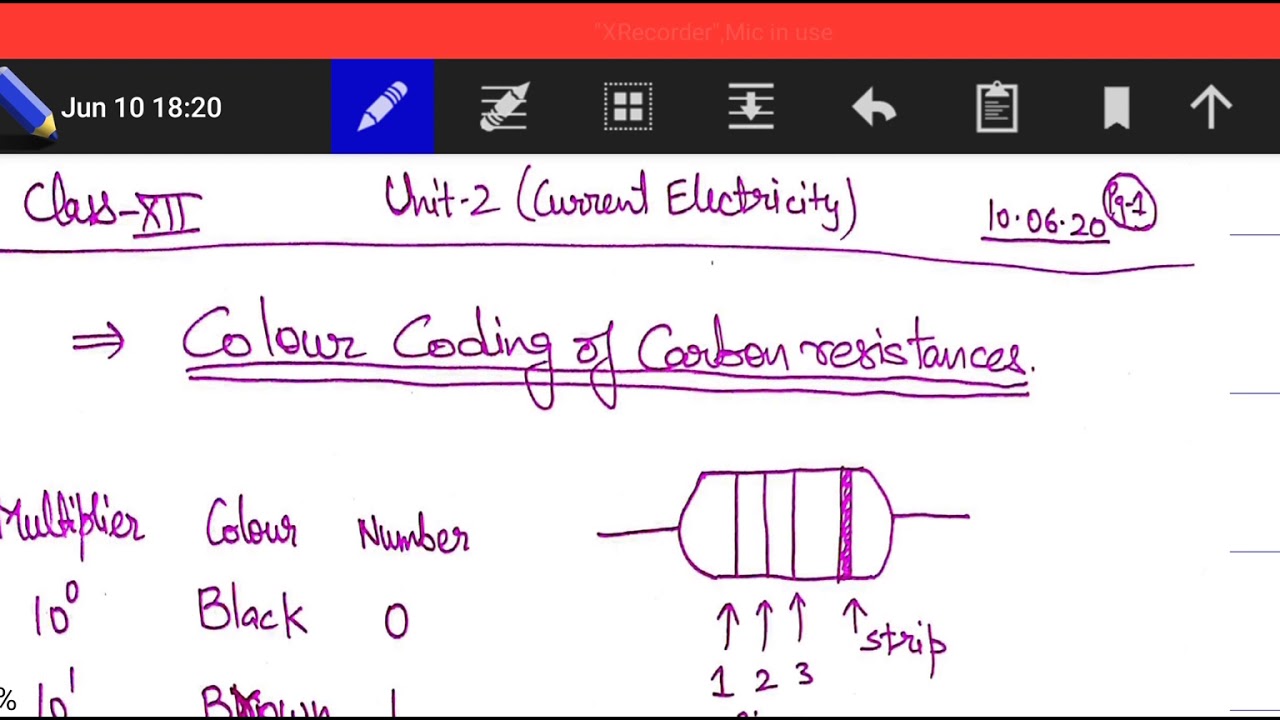 "XRecorder",Mic in use
Jun 10 18:20
Class-XII Unit-2 (Current Electricity) 10.06.20 Pg-1
⇒ Colour Coding of Carbon resistances.
Multiplier Colour Number
10⁰ Black 0
↑ ↑ ↑ ↑ strip
1 2 3
% 10¹ Brown 1